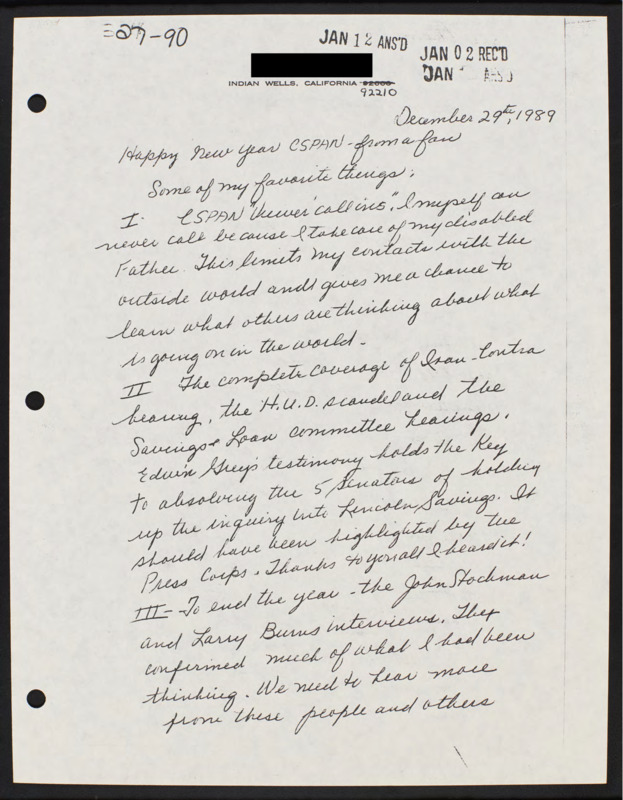 27-90
JAN 12 ANS'D
JAN 02 REC'D
JAN ANS'D
INDIAN WELLS, CALIFORNIA
92210
December 29th, 1989
Happy New Year CSPAN - from a fan
Some of my favorite things;
I. CSPAN "Viewer' call ins". I myself can
never call because I take care of my disabled
Father. This limits my contacts with the
outside world and gives me a chance to
learn what others are thinking about what
is going on in the world.
II The complete coverage of Iran-Contra
hearing, the H.U.D. scandel and the
Savings & Loan committee hearings.
Edwin Grey's testimony holds the Key
to absolving the 5 Senators of holding
up the inquiry into Lincoln Savings. It
should have been highlighted by the
Press Corps. Thanks to you all I heard it!
III - To end the year - the John Stockman
and Larry Burns interviews. They
confirmed much of what I had been
thinking. We need to hear more
from these people and others